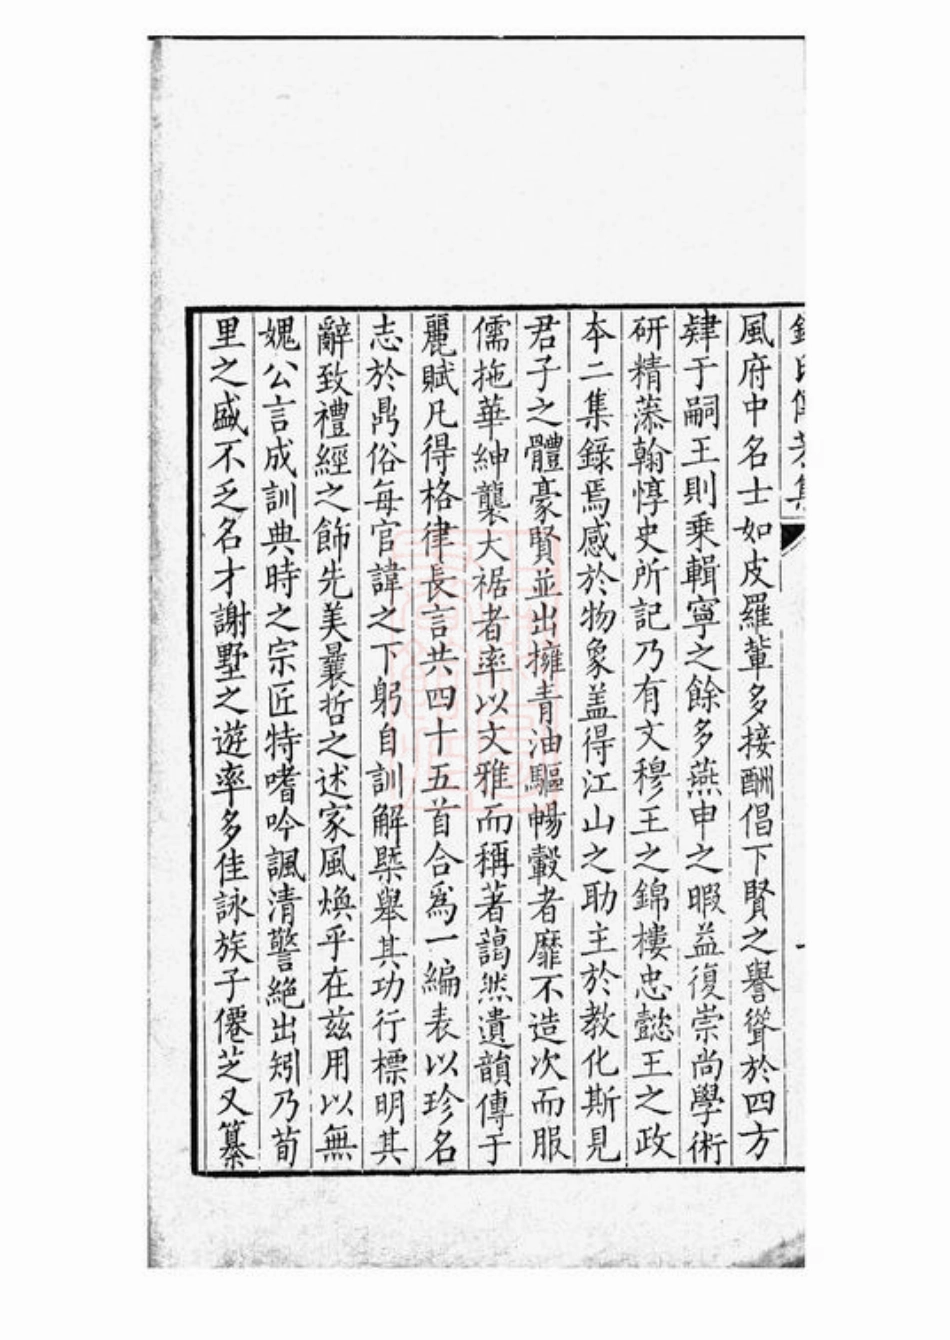 風府中名士如皮羅軰多接酬倡下賢之譽聳於四方
肄于嗣王則乗輯寧之餘多燕申之暇益復崇尚學術
研精藻翰惇史所記乃有文穆王之錦樓忠懿王之政
本二集錄焉感於物象盖得江山之助主於教化斯見
君子之體豪賢並出擁青油驅暢轂者靡不造次而服
儒拖華紳襲大裾者率以文雅而稱著藹然遺韻傳于
麗賦凡得格律長言共四十五首合爲一編表以珍名
志於鼎俗每官諱之下躬自訓解槩舉其功行標明其
辭致禮經之飾先美曩哲之述家風煥乎在兹用以無
媿公言成訓典時之宗匠特嗜吟諷清警絶出矧乃荀
里之盛不乏名才謝墅之遊率多佳詠族子僊芝又纂